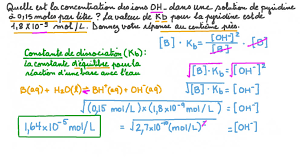 Quelle est la concentration des ions OH⁻ dans une solution de pyridine
à 0,15 moles par litre ? La valeur de Kb pour la pyridine est de
1,8 X 10⁻⁹ mol/L. Donnez votre réponse au centième près.
Constante de dissociation (Kb) :
la constante d'équilibre pour la
réaction d'une base avec l'eau
B(aq) + H₂O(l) ⇌ BH⁺(aq) + OH⁻(aq)
[B] · Kb = [OH⁻]² / [B] · [B]
√[B] · Kb = √[OH⁻]²
√[B] · Kb = [OH⁻]
√(0,15 mol/L) × (1,8 × 10⁻⁹ mol/L) = [OH⁻]
1,64 × 10⁻⁵ mol/L = √2,7 × 10⁻¹⁰ (mol/L)² = [OH⁻]